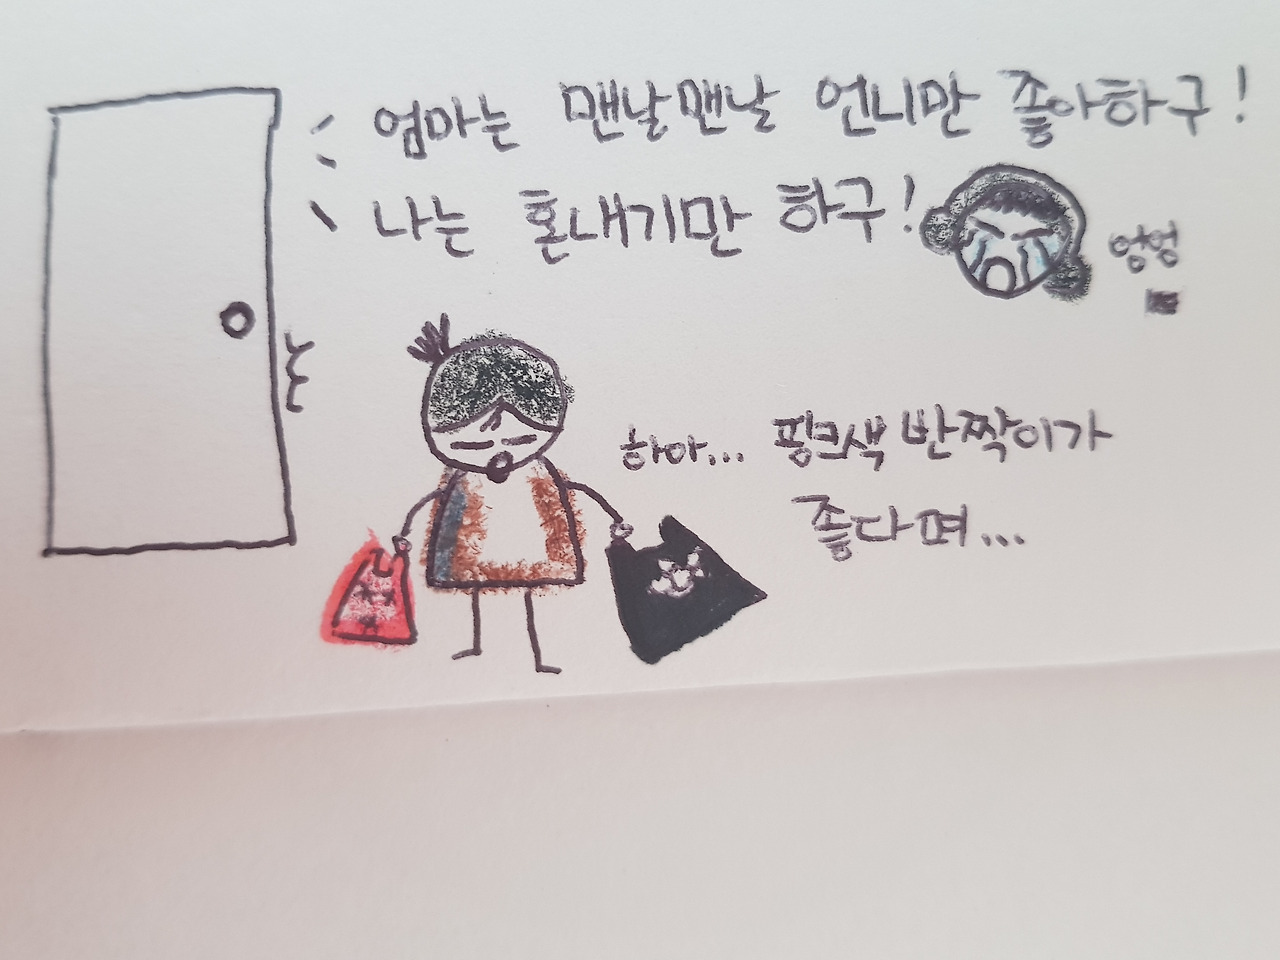 엄마는 맨날맨날 언니만 좋아하구!
나는 혼내기만 하구!
엉엉
하아... 핑크색 반짝이가
좋다며...